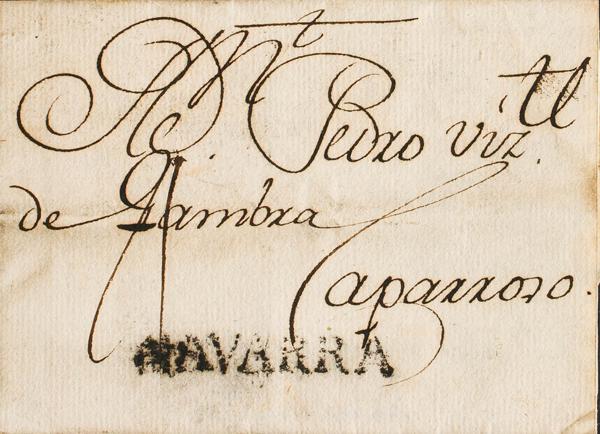 Pedro Viz.
de Gambra
Caparroso.
NAVARRA